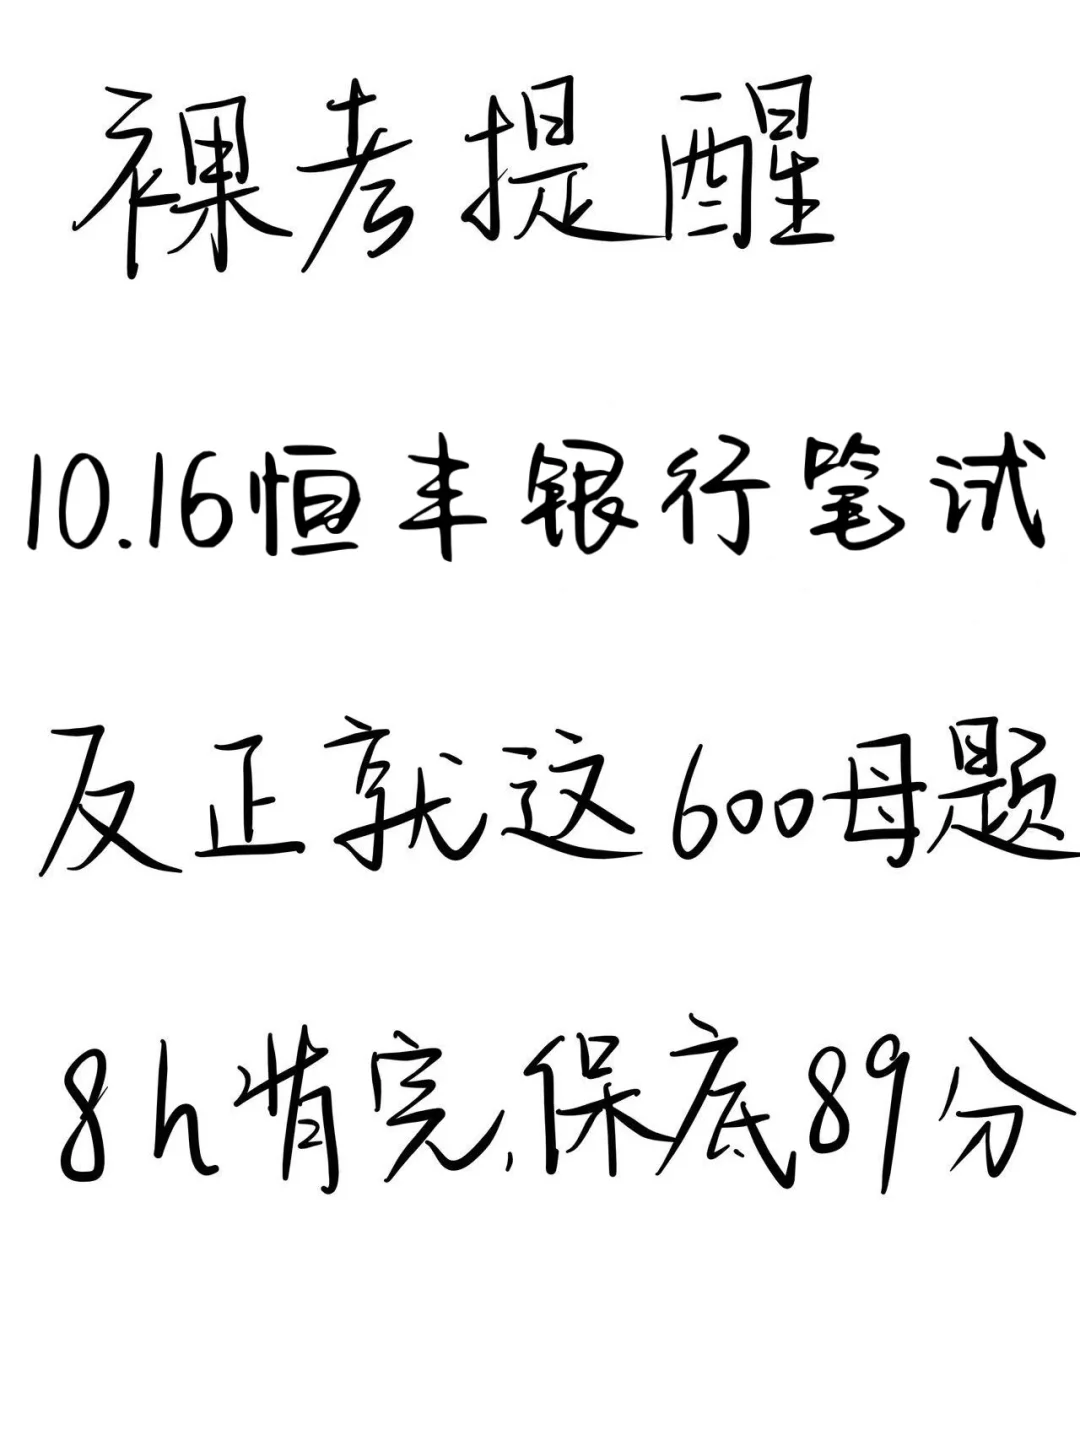 裸考提醒
10.16恒丰银行笔试
反正就这600母题
8h背完,保底89分